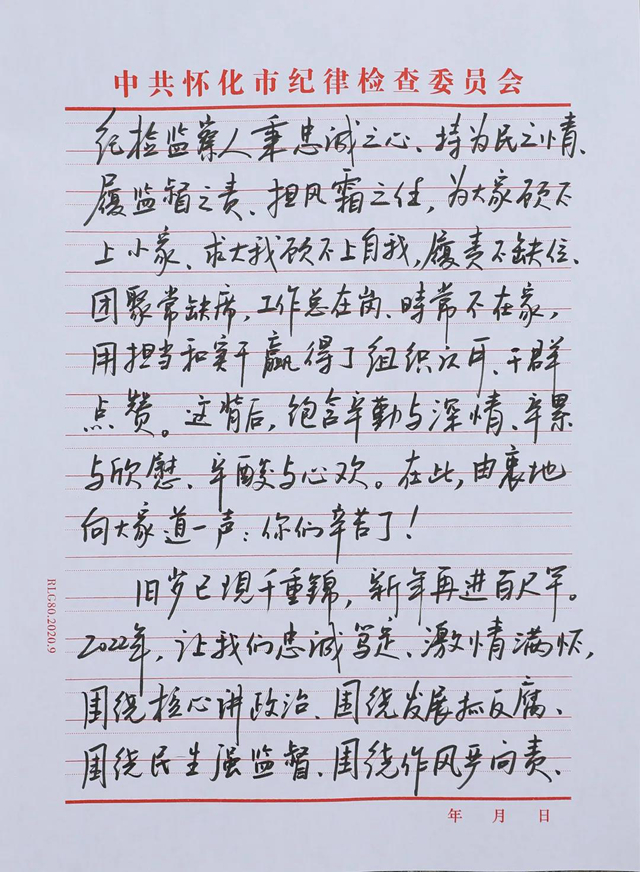 中共怀化市纪律检查委员会
纪检监察人秉忠诚之心、持为民之情、
履监督之责、担风霜之任，为大家顾不
上小家、求大我顾不上自我，履责不缺位、
团聚常缺席，工作总在岗、時常不在家，
用担当和实干赢得了组织认可、干群
点赞。这背后，饱含辛勤与深情、辛累
与欣慰、辛酸与心欢。在此，由衷地
向大家道一声：你们辛苦了！
旧岁已現千重錦，新年再进百尺竿。
2022年，让我们忠诚笃定、激情满怀，
围绕核心讲政治、围绕发展抓反腐、
围绕民生强监督、围绕作风严问责、
年 月 日
RLG80.2020.9